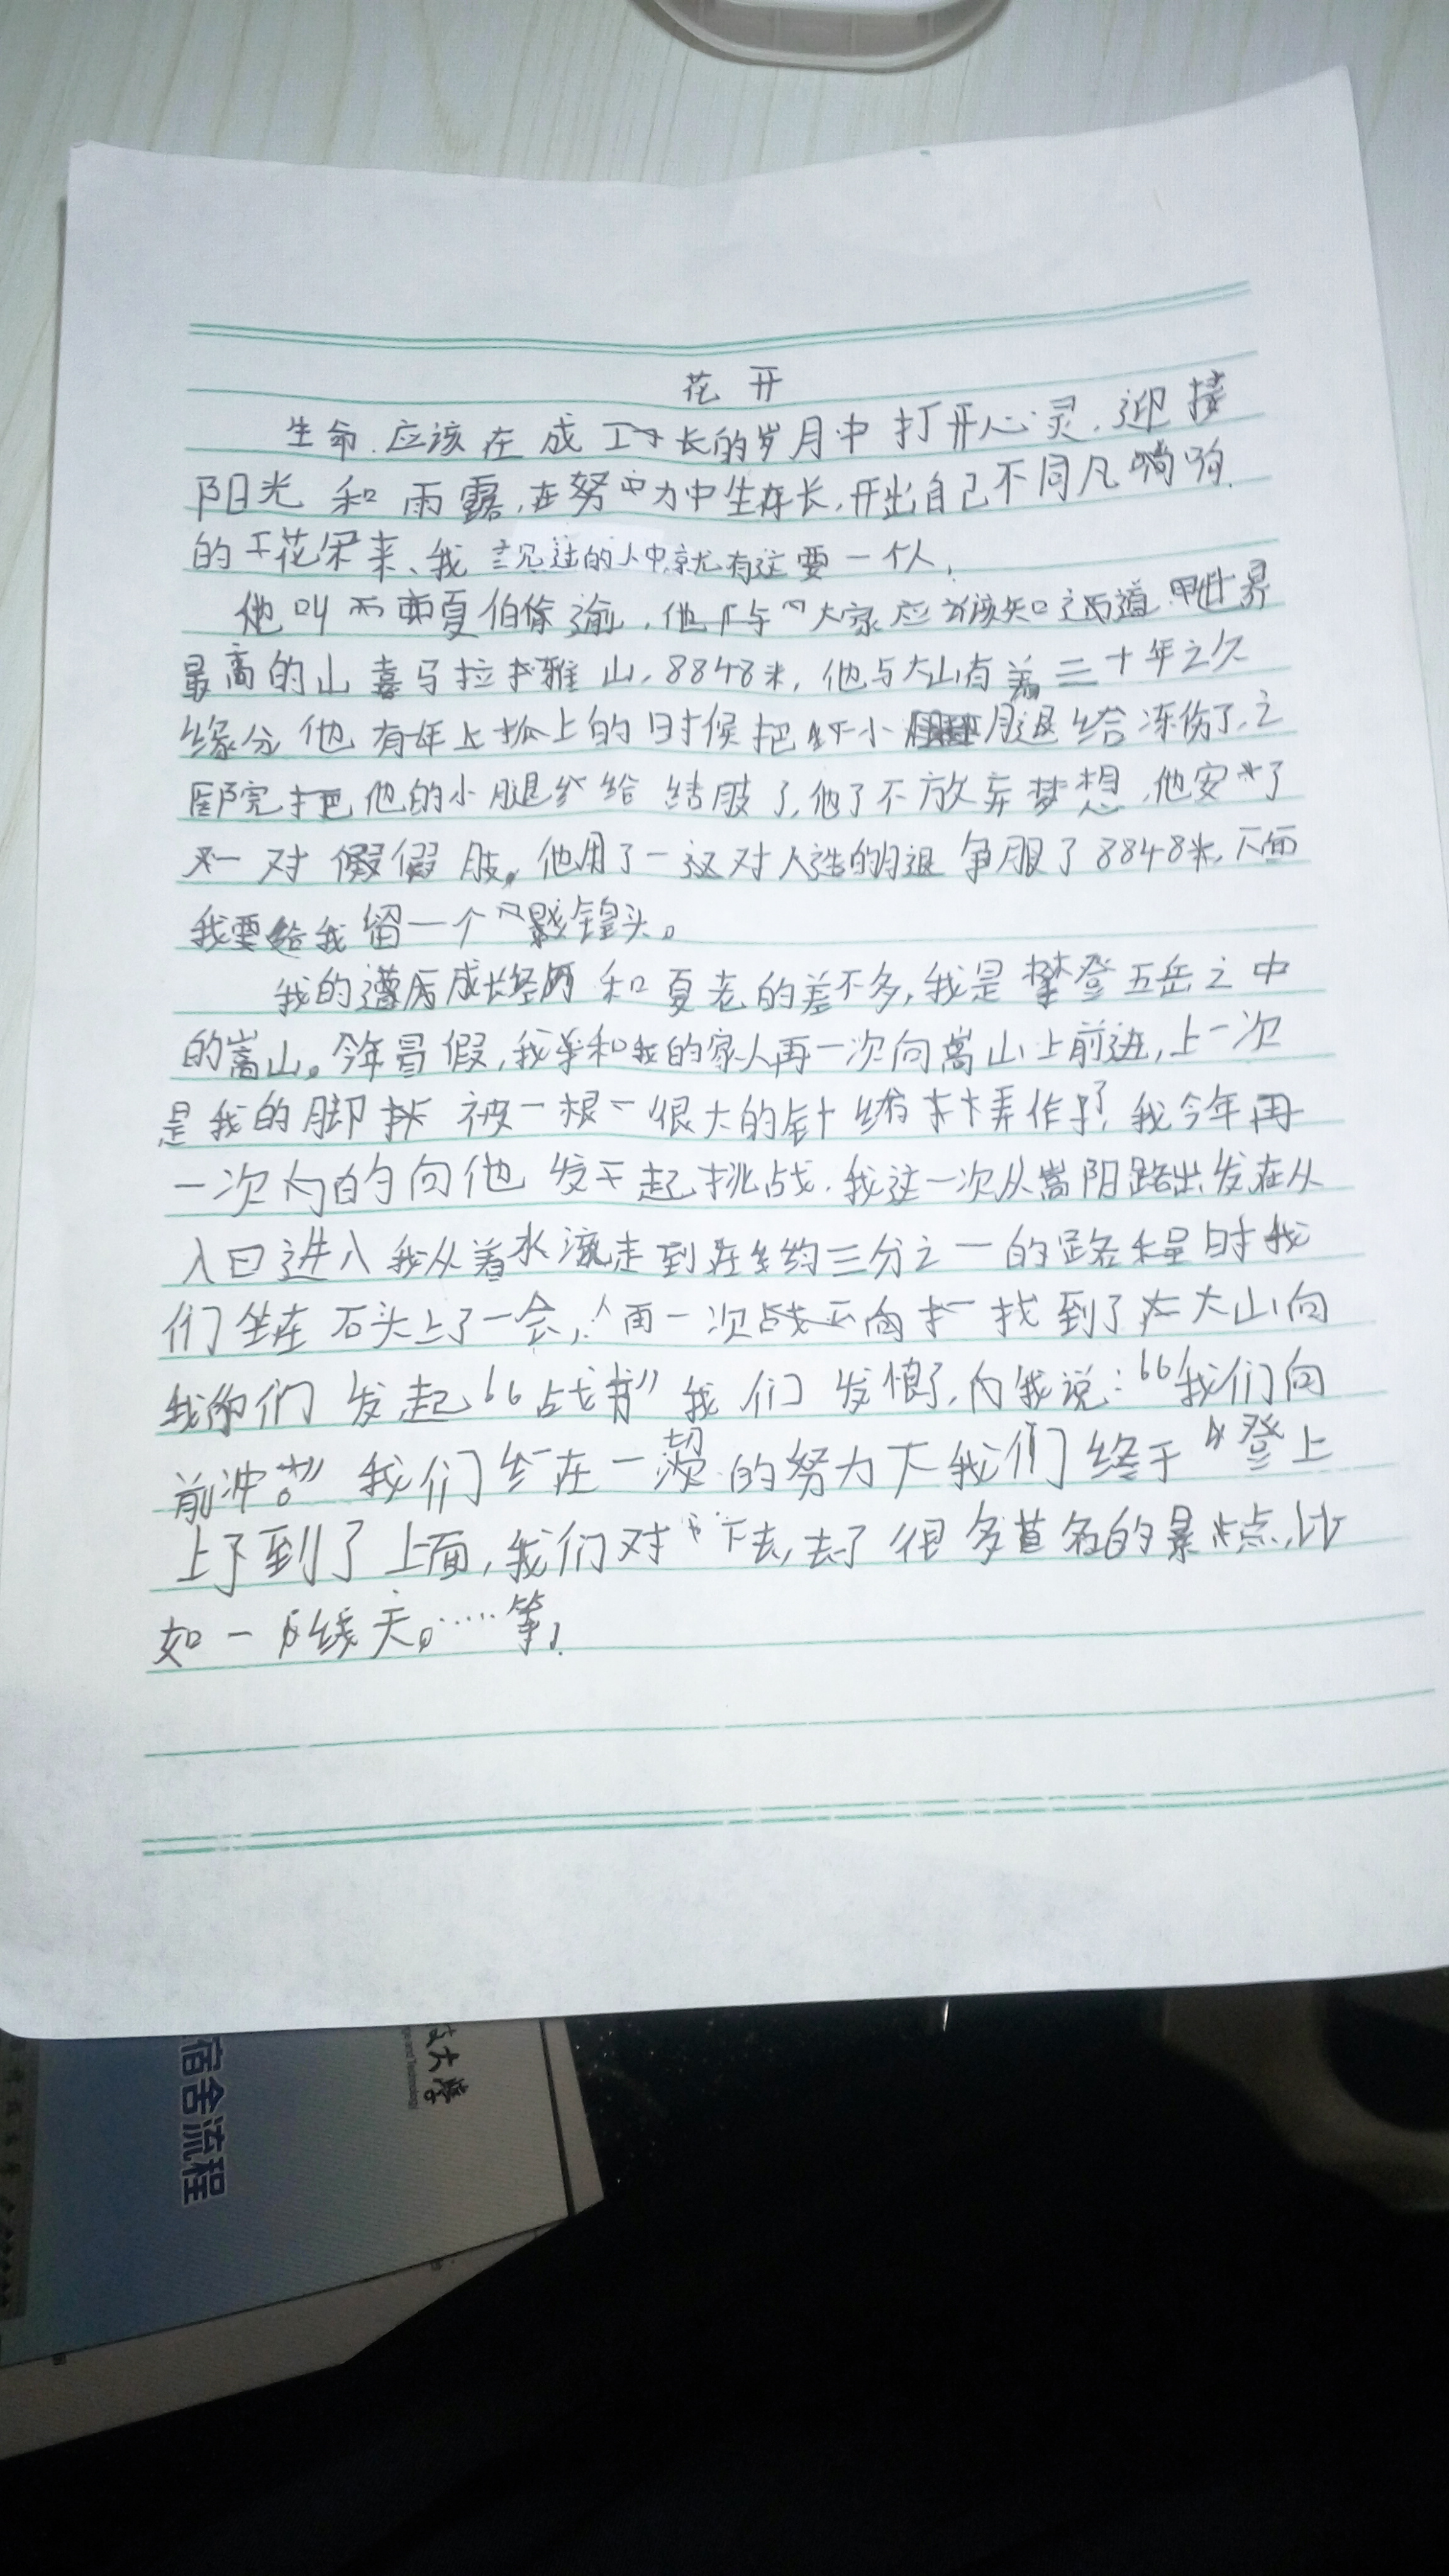 花开
生命.应该在成长的岁月中打开心灵.迎接
阳光和雨露,在努力中生存长,开出自己不同凡响
的花朵来、我见过的人中就有这要一个人,
他叫夏伯俞,他与大家应该知道世界
最高的山喜马拉雅山,8848米,他与大山有二十年之久
缘分他有年上的时候把小腿给冻伤了,之
医院把他的小腿给结肢了,他了不放弃梦想,他安了
一对假肢,他用了一这对人造的腿争服了8848米,下面
我要给我留一个镜头。
我的成长和夏老的差不多,我是攀登五岳之中
的嵩山。今年冒假,我和我的家人再一次向嵩山上前进,上一次
是我的脚被一根很大的针弄了我今年再
一次的向他发起挑战.我这一次从嵩阳路出发,在从
入口进入我从着水流走到在约三分之一的路程时我
们坐在石头上了一会,再一次找到了大山向
我们发起“战书”我们发愤了,内我说:“我们向
前冲。”我们在一的努力下我们终于登上
上了到了上面,我们对下去,去了很多著名的景点,比
如一线天。……等,
宿舍流程
技大学
and Technology